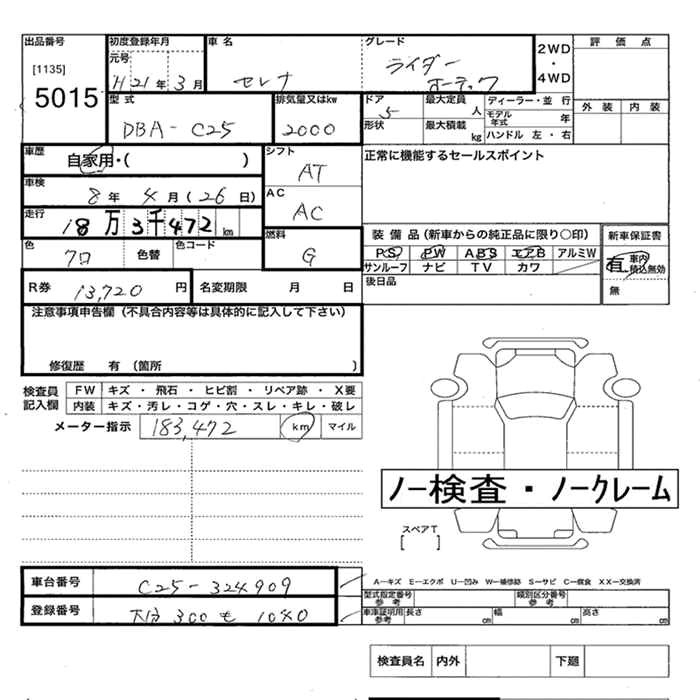 出品番号 初度登録年月 車名 グレード 2WD・4WD 評価点
[1135]
5015
元号
H21年3月 セレナ ライダー
オーテック
型式 排気量又はkw ドア 最大定員 人 ディーラー・並行 外装 内装
DBA-C25 2000 5 モデル年式 年
形状 最大積載 kg ハンドル 左・右
車歴 自家用・( ) シフト AT 正常に機能するセールスポイント
車検 8年4月(26日) AC AC
走行 18万3千472km 燃料 G 装備品(新車からの純正品に限り○印) 新車保証書
色 クロ 色替 色コード PS PW ABS エアB アルミW 有 車内 積込無効
サンルーフ ナビ TV カワ 無
R券 13,720円 名変期限 月 日 後日品
注意事項申告欄(不具合内容等は具体的に記入して下さい)
修復歴 有(箇所 )
検査員記入欄 FW キズ・飛石・ヒビ割・リペア跡・X要
内装 キズ・汚レ・コゲ・穴・スレ・キレ・破レ
メーター指示 183,472 km マイル
ノー検査・ノークレーム
スペアT
[ ]
車台番号 C25-324909 A-キズ E-エクボ U-凹み W-補修跡 S-サビ C-腐食 XX-交換済
型式指定番号 参考 類別区分番号 参考
登録番号 大分 300 も 1040 車庫証明用 参考 長さ cm 幅 cm 高さ cm
検査員名 内外 下廻